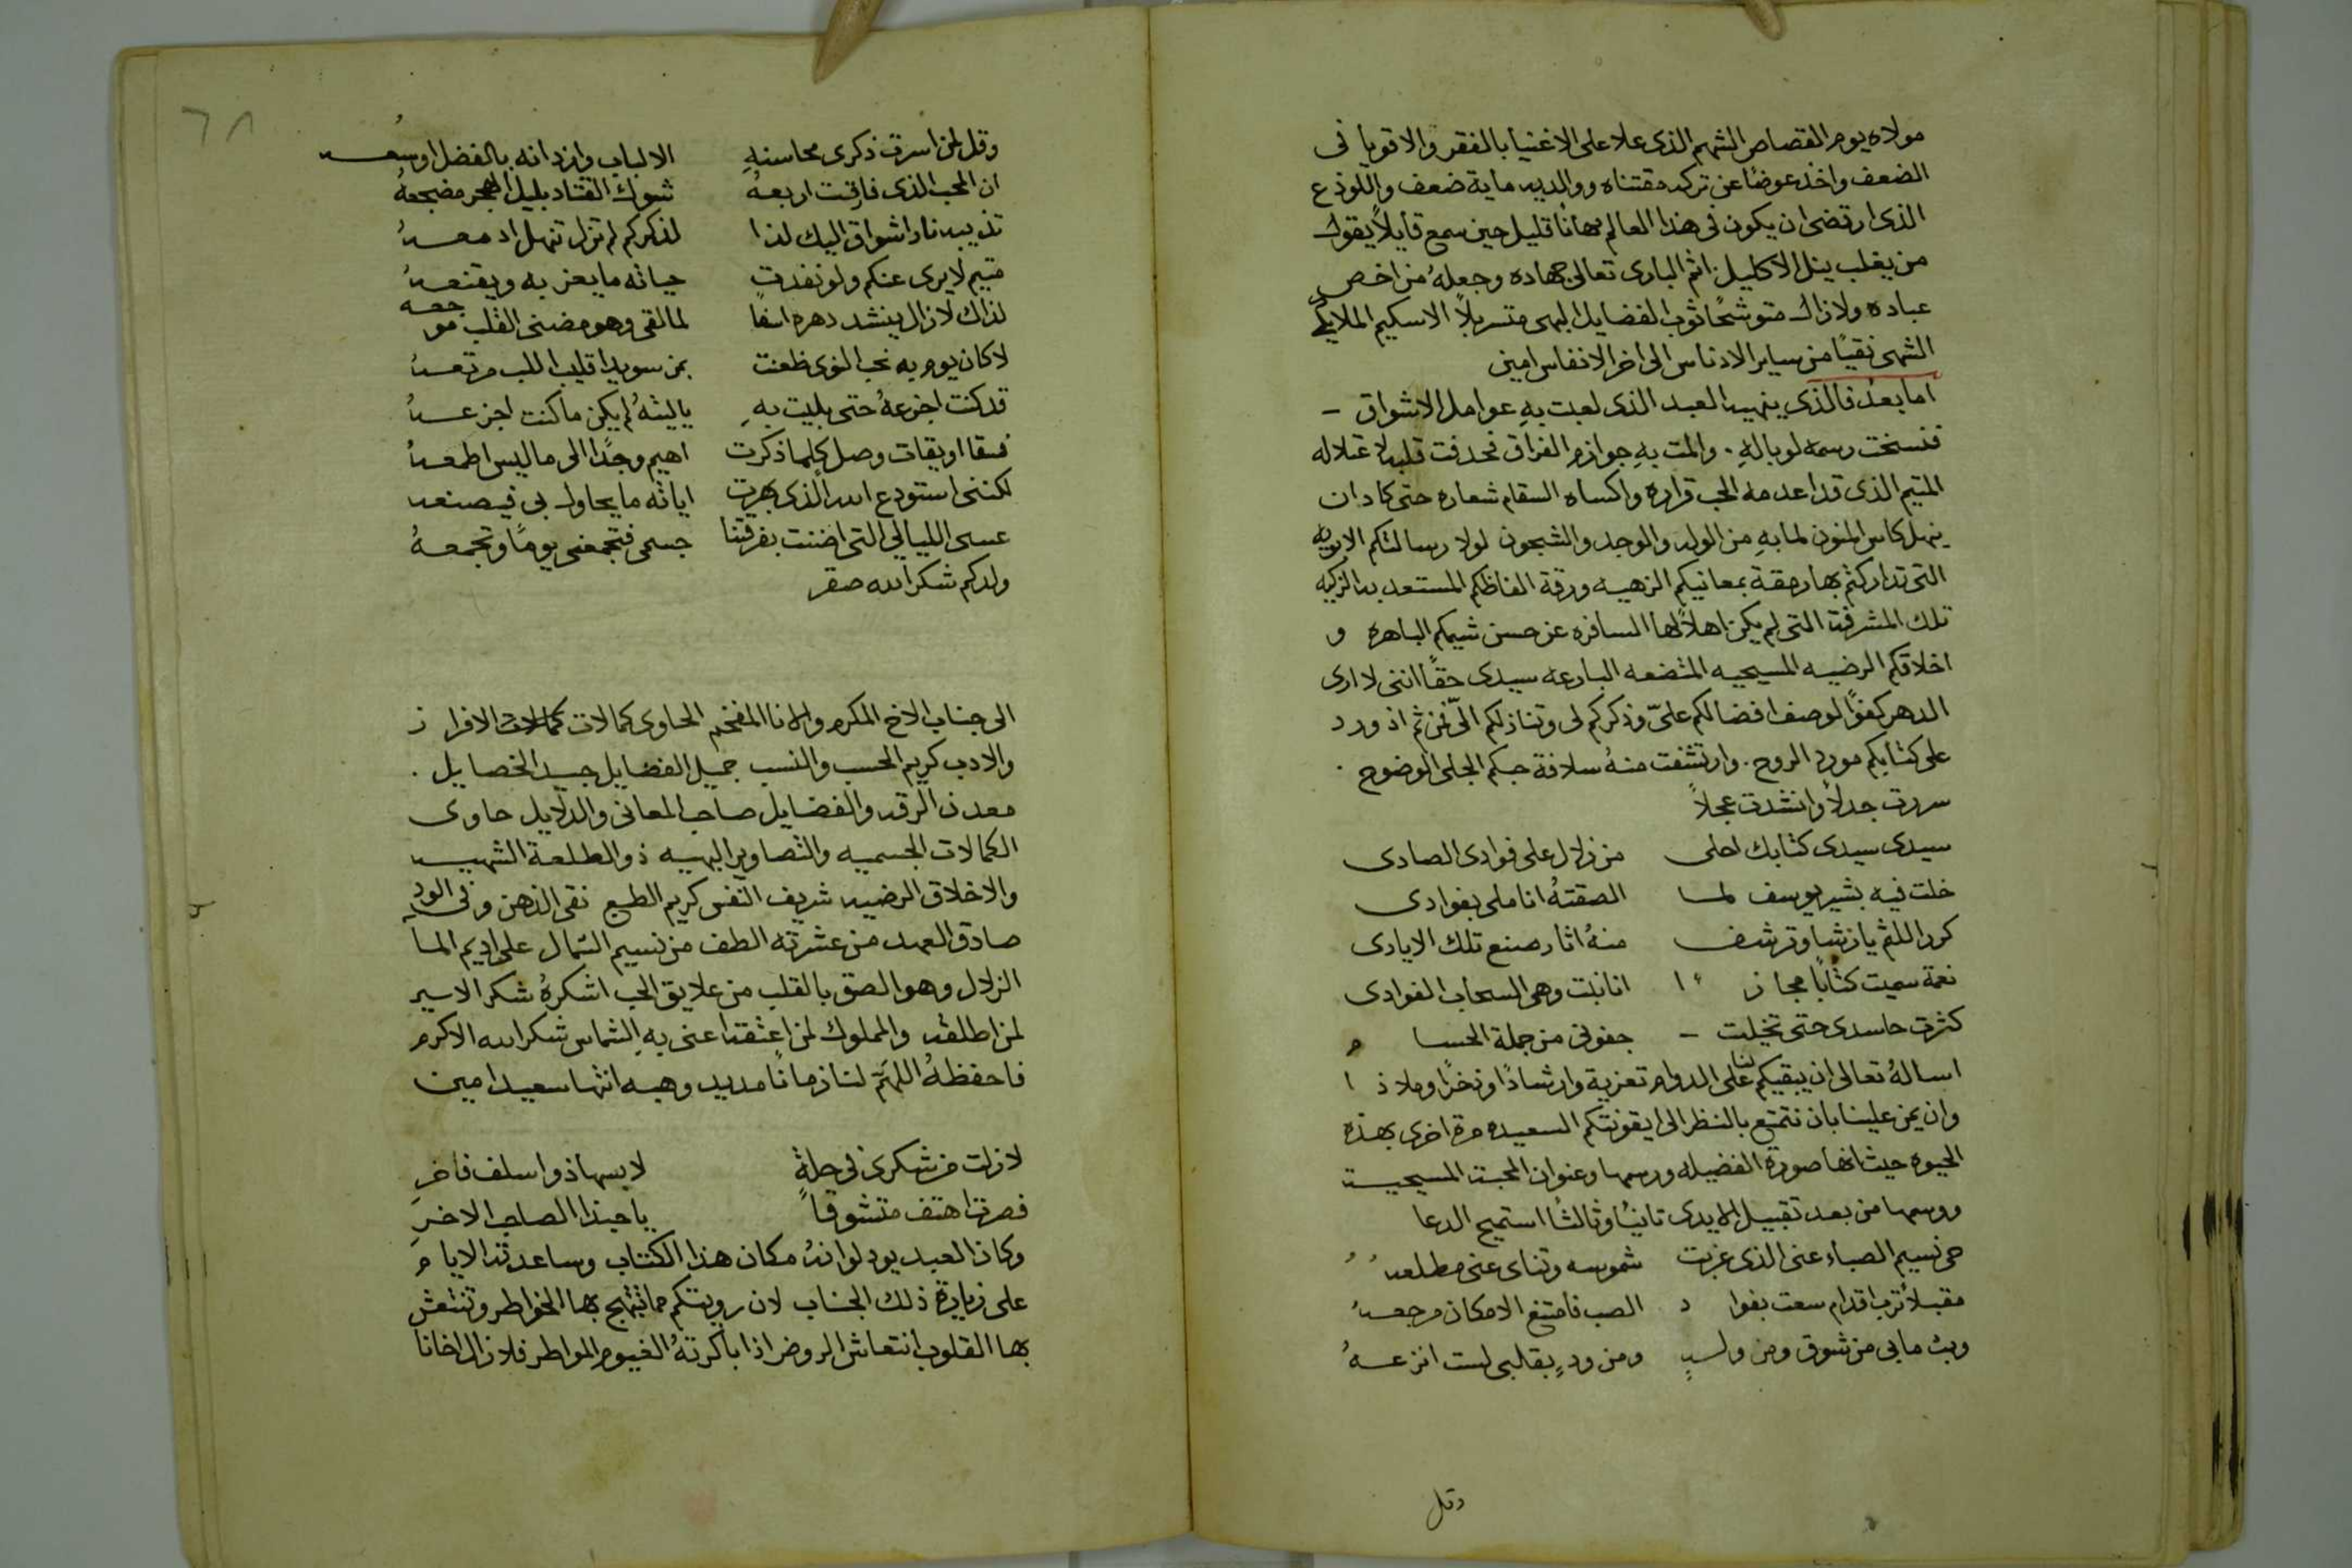 مولاه يوم القصاص الشهم الذى علا على الاغنيا بالفقر والاقويا فى
الضعف واخذ عوضًا عن تركه مقتناه ووالديه ماية ضعف واللوذع
الذى ارتضى ان يكون فى هذا العالم مهانًا قليل حين سمع قايلاً يقول
من يغلب ينل الاكليل اتم البارى تعالى جهاده وجعلهُ من اخص
عباده ولازال متوشحًا ثوب الفضايل البهى متسربلاً الاسكيم الملايكى
الشهى نقيًا من ساير الادناس الى اخر الانفاس امين
اما بعد فالذى ينهيه العبد الذى لعبت بهِ عوامل الاشواق
فنسخت رسمه لوبالهِ . والمت بهِ جوازم الفراق فحدفت قلبه لاعتلاله
المتيم الذى قد اعدمه الحب قراره واكساه السقام شعاره حتى كاد ان
ينهل كاس المنون لما بهِ من الوله والوجد والشجون لولا رسالتكم الابويه
التى تداركتم بها رمقة بمعانيكم الزهيه ورقة الفاظكم المستعدبه الزكيه
تلك المشرفة التى لم يكن اهلاً لها السافره عن حسن شيمكم الباهره و
اخلاقكم الرضيه المسيحيه المتضعه البارعه سيدى حقًا اننى لا ارى
الدهر كفوًا لوصف افضالكم علىّ وذكركم لى وتنازلكم الىّ فمن ثم اذ ورد
على كتابكم مورد الروح . وارتشفت منهُ سلافة حبكم الجلى الوضوح .
سررت جدلاً وانشدت عجلاً
سيدى سيدى كتابك احلى من زلال على فوادى الصادى
خلت فيه بشير يوسف لما الصقتهُ اناملى بفوادى
كرر اللثم يا رشا وترشف منهُ اثار صنع تلك الايادى
نعمة سميت كتابًا مجازًا انابلت وهى السحاب الغوادى
كثرت حاسدى حتى تخيلت جفونى من جملة الحسا
اسالهُ تعالى ان يبقيكم لنا على الدوام تعزية وارشادًا وذخرًا وملاذا
وان يمن علينا بان نتمتع بالنظر الى ايقونتكم السعيده مرة اخرى بهذه
الحيوه حيث انها صورة الفضيله ورسمها وعنوان المحبة المسيحية
ووسمها من بعد تقبيل الايدى ثانيًا وثالثًا استميح الدعا
حى نسيم الصباء عنى الذى غربت شموسه وتناى عنى مطلعهُ
مقبلاً ترب اقدام سعت بفواد الصب فامتنع الامكان مرجعهُ
وبث مابى من شوق ومن ولهٍ ومن ودٍ بقلبى لست انزعهُ
وقل
٦٨
وقل لمن اسرت ذكرى محاسنهِ الالباب وازدانه بالفضل اوسعه
ان المحب الذى فارقت اربعهُ شوك القتاد بليل الهجر مضجعهُ
تذيبه نار اشواق اليك لذا لذكركم لم تزل تنهل ادمعهُ
متيم لا يرى عنكم ولو نفدت حياته ما يعز به ويقنعهُ
لذاك لازال ينشد دهره اسفًا لما لقى وهو مضنى القلب موجعه
لا كان يوم به نجب النوى ظعنت بمن سويدا قليب اللب مرتعهُ
قد كنت اجزعهُ حتى بليت بهِ ياليتهُ لم يكن ما كنت اجزعهُ
فسقا اويقات وصل كلما ذكرت اهيم وجدًا الى ما ليس اطمعهُ
لكننى استودع الله الذى بهرت اياته ما يحاول بى فيصنعه
عسى الليالى التى اضنت بفرقتنا جسمى فتجمعنى يومًا وتجمعهُ
ولدكم شكرالله صقر
الى جناب الاخ المكرم والانا المفخم الحاوى كمالات كمالات الافراز
والادب كريم الحسب والنسب جميل الفضايل جسيد الخصايل .
معدن الرقه والفضايل صاحب المعانى والدلايل حاوى
الكمالات الجسميه والتصاوير البهيه ذو الطلعة الشهيه
والاخلاق الرضيه شريف النفس كريم الطبع نقى الذهن وفى الود
صادق العهد من عشرته الطف من نسيم الشمال على اديم الما
الزلال وهو الصق بالقلب من علايق الحب اشكرهُ شكر الاسير
لمن اطلقه والمملوك لمن اعتقه اعنى بهِ الشماس شكرالله الاكرم
فاحفظهُ اللهمّ لنا زمانًا مديد وهبه انتها سعيد امين
لازلت من شكرى فى حلةٍ لابسها ذو اسلف فاخرِ
فصرت اهتف متشوقًا ياحبذا الصاحب الاخرِ
وكان العبد يود لوانهُ مكان هذا الكتاب وساعدته الايام
على زيارة ذلك الجناب لان رويتكم مما تبتهج بها الخواطر وتنتعش
بها القلوب انتعاش الروض اذا باكرتهُ الغيوم المواطر فلازال اخانا